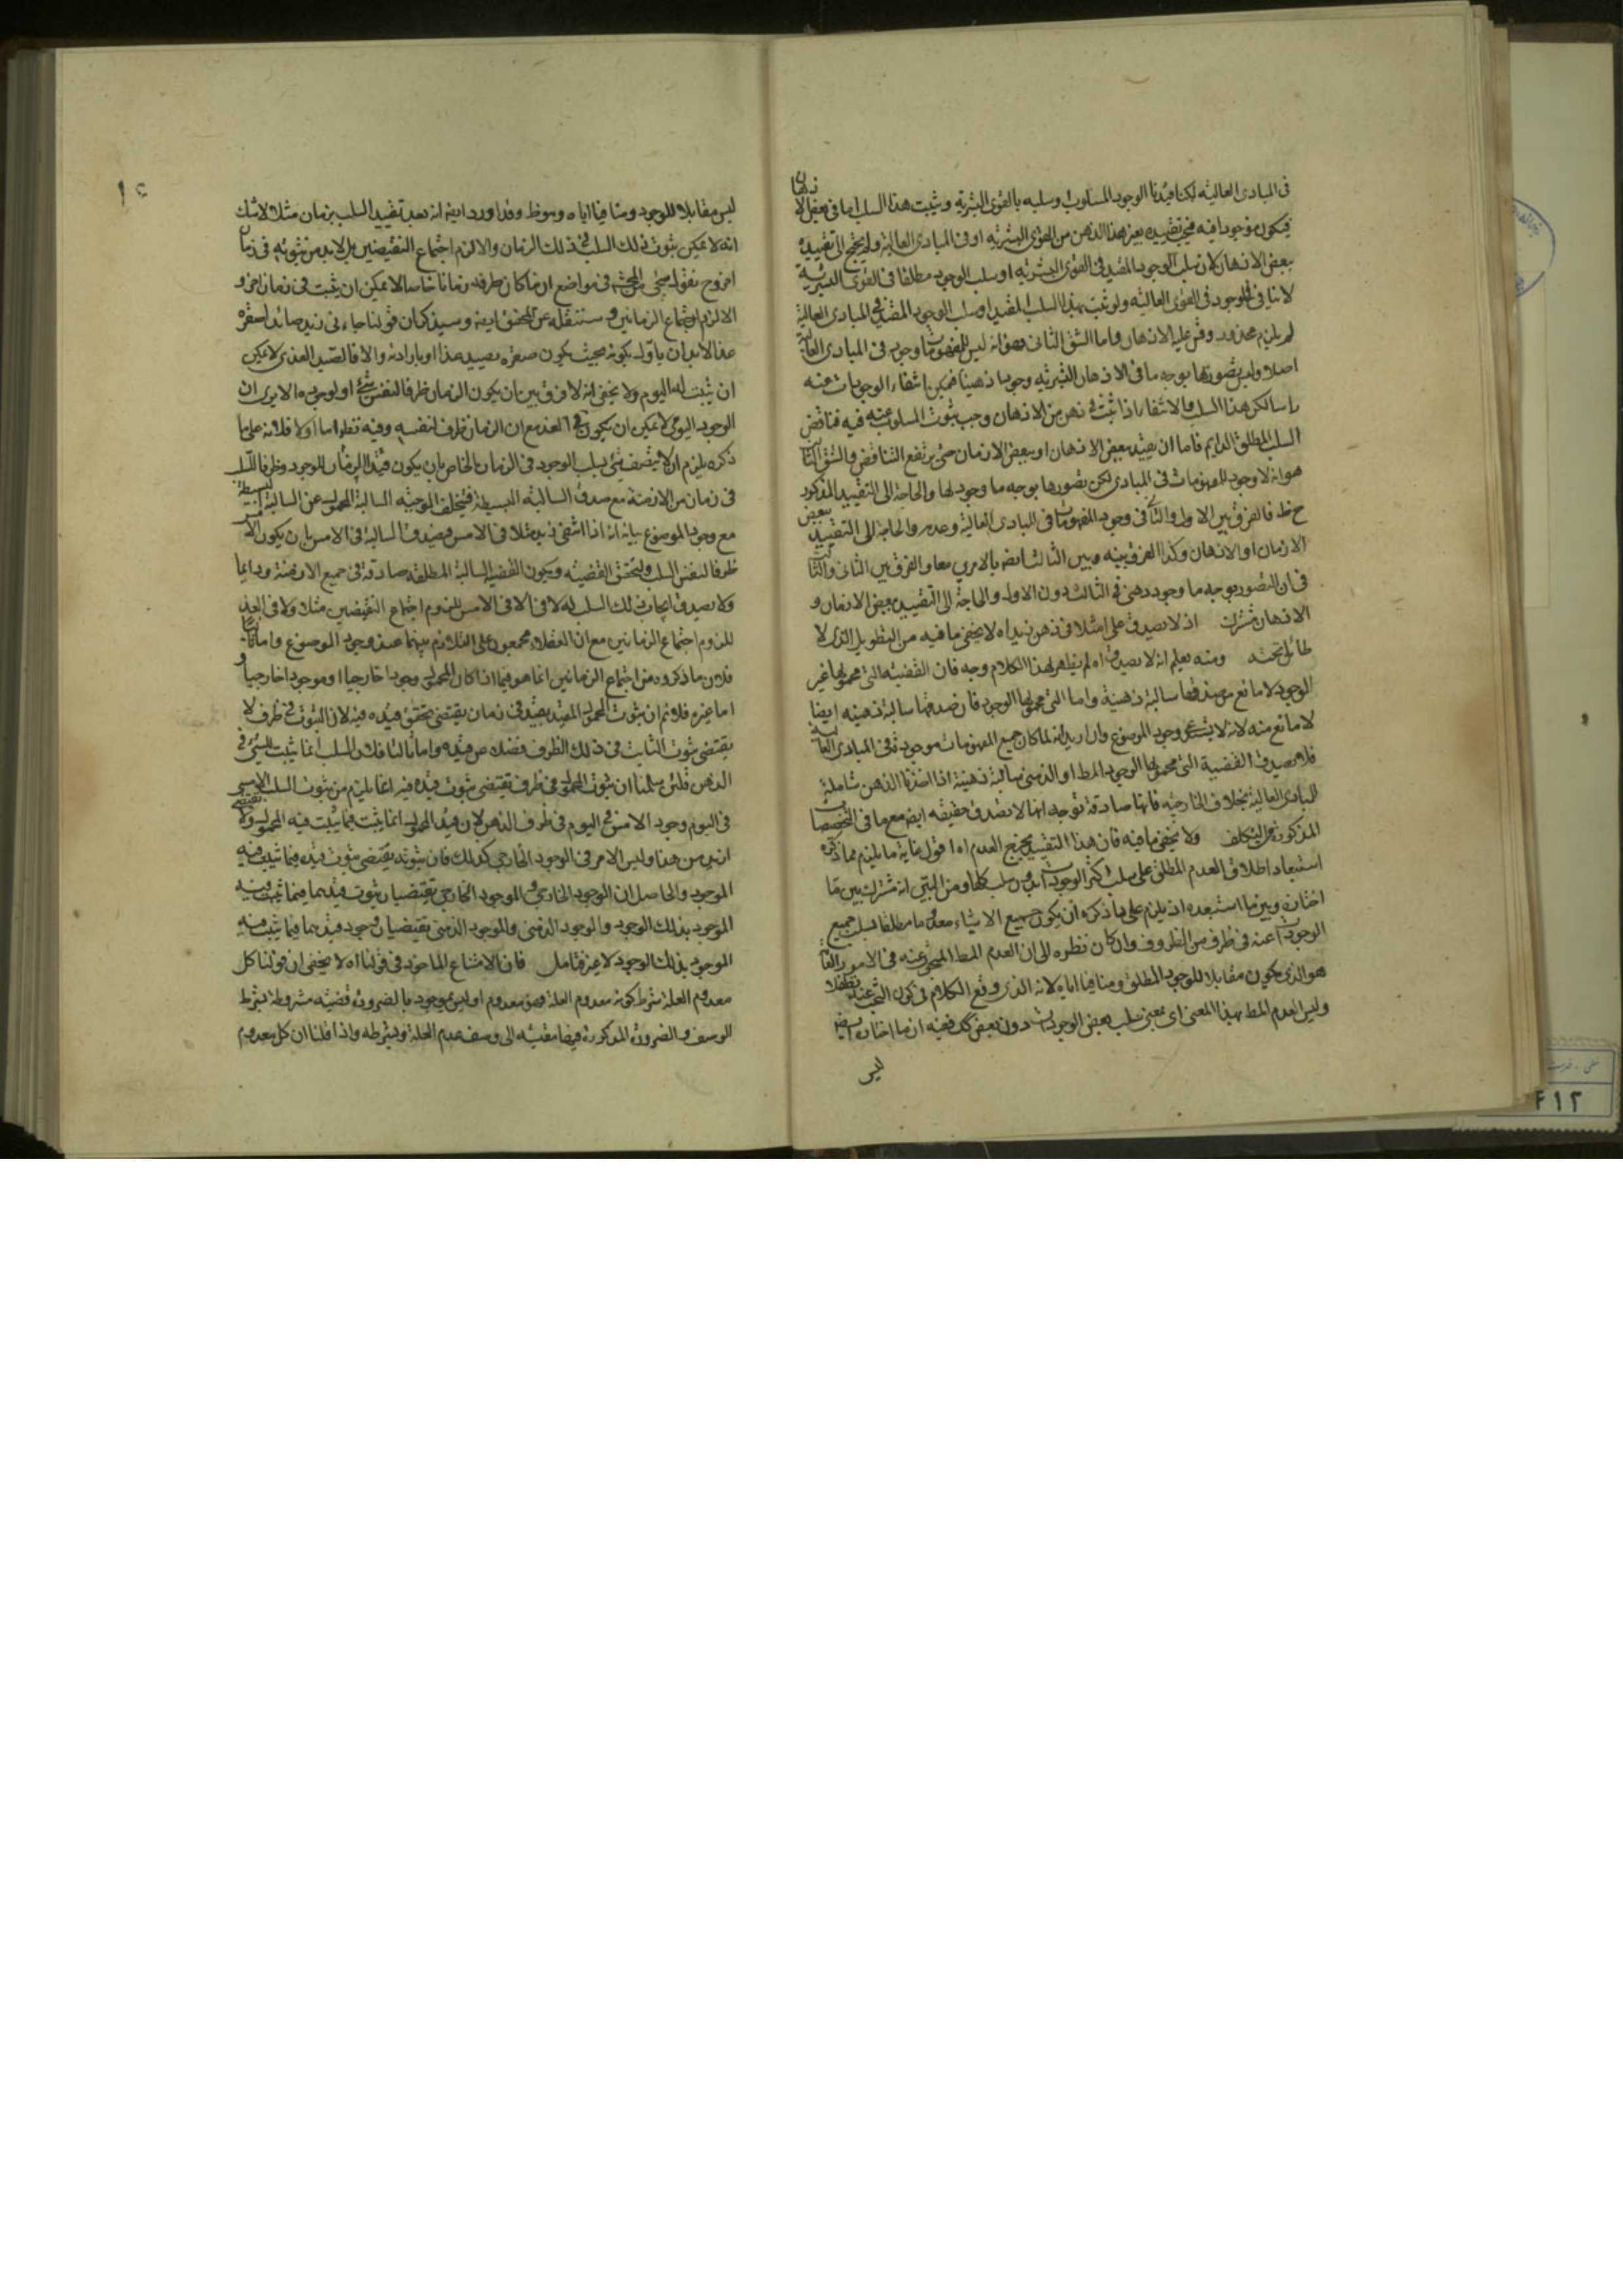 في المبادى العالية لكنا قيدنا الوجود المسلوب وسلبه بالقوى البشرية ويثبت هذا السلب اما في بعض الاذهان
فيكون موجودا فيه تقييده بغير هذا الذهن من القوى البشرية او في المبادى العالية ولم يحتج الى تقييده
ببعض الاذهان لان سلب الوجود المقيد في القوى البشرية او سلب الوجود مطلقا في القوى البشرية
لا ينافي الوجود في القوى العالية ولو ثبت بهذا السلب المقيد او سلب الوجود المقيد في المبادى العالية
لم يلزم محذور وقس عليه الاذهان واما الشق الثاني وهو انه ليس للمفهومات وجود في المبادى العالية
اصلا وليس تصورها بوجه ما في الاذهان البشرية وجودا ذهنيا فيمكن انتفاء الوجودات عنه
راسا لكن هذا السلب والانتفاء اذا ثبت في ذهن من الاذهان وجب ثبوت المسلوب عنه فيه فناقض
السلب المطلق الدايم فاما ان يقيد ببعض الاذهان او ببعض الازمان حتى يرتفع التناقض والشق الثالث
هو انه لا وجود للمفهومات في المبادى لكن تصورها بوجه ما وجود لها والحاجة الى التقييد المذكور
ح ظ فالفرق بين الاول والثاني في وجود المفهومات في المبادى العالية وعدمه والحاجة الى التقييد ببعض
الازمان او الاذهان وكذا الفرق بينه وبين الثالث ايضا بالامرين معا والفرق بين الثاني والثالث
في ان التصور بوجه ما وجود ذهني في الثالث دون الاول والحاجة الى التقييد ببعض الازمان و
الاذهان مشترك اذ لا يصدق على امثلا في ذهن زيد اه لا يخفى ما فيه من التطويل الذي لا
طائل تحته ومنه يعلم انه لا يصدق اه لم يظهر لهذا الكلام وجه فان القضية التي محمولها غير
الوجود لا مانع من صدقها سالبة ذهنية واما التي محمولها الوجود فان صدقها سالبة ذهنية ايضا
لا مانع منه لانه لا يستدعي وجود الموضوع وان اريد انه لما كان جميع المفهومات موجودة في المبادى العالية
فلا يصدق القضية التي محمولها الوجود المط او الذهني سالبة ذهنية اذا اخذنا الذهن شاملة
للمبادى العالية بخلاف الخارجية فانها صادقة توجه انها لا تصدق حقيقه ايضا مع ما في التخصيصات
المذكورة من التكلف ولا يخفى ما فيه فان هذا التقييد يخرج العدم اه اقول غاية ما يلزم مما ذكره
استبعاد اطلاق العدم المطلق على سلب اكثر الوجودات دون سلب كلها ومن البين انه مشترك بين ما
اختاره وبين ما استبعده اذ يلزم على ما ذكره ان يكون جميع الاشياء معدوما مطلقا فسلب جميع
الوجودات عنه في ظرف من الظروف وان كان نظره الى ان العدم المط المبحوث عنه في الامور العامة
هو الذي يكون مقابلا للوجود المطلق ومنافيا اياه لانه الذي وقع الكلام في كون البحث عنه تطفلا
وليس العدم المط بهذا المعنى اى بمعنى سلب بعض الوجودات دون بعض كك ففيه ان ما اختاره ايضا
ليس
ليس مقابلا للوجود ومنافيا اياه وهو ظ وقد اورد ايضا انه بعد تقييد السلب بزمان مثلا لا شك
انه لا يمكن ثبوت ذلك السلب في ذلك الزمان والا لزم اجتماع النقيضين بل لا بد من ثبوته في زمان
اخر وح نقول سيجئ للمحشى في مواضع ان ما كان ظرفه زمانا خاصا لا يمكن ان يثبت في زمان اخر و
الا لزم اجتماع الزمانين وسننقله عن المحقق ايضا وسيذكر ان قولنا جاءني زيد صائدا صقره
غدا لا بد ان ياول بكونه بحيث يكون صقره يصيد غدا او بارادته والا فالصيد الغدي لا يمكن
ان يثبت له اليوم ولا يخفى انه لا فرق بين ان يكون الزمان ظرفا لنفس شئ او لوجوده الا يرى ان
الوجود اليومي لا يمكن ان يكون في الغد مع ان الزمان ظرف لنفسه وفيه نظر اما اولا فلانه على ما
ذكره يلزم ان لا يتصف شئ بسلب الوجود في الزمان الخاص بان يكون قيد الزمان للوجود وظرفا للسلب
في زمان من الازمنة مع صدق السالبة البسيطة فيتخلف الموجبة السالبة المحمول عن السالبة البسيطة
مع وجود الموضوع بيانه انه اذا انتفى زيد مثلا في الامس فيصدق السالبة في الامس بان يكون الامس
ظرفا لنفس السلب ولتحقق القضية ويكون القضية السالبة المطلقة صادقة في جميع الازمنة ودايما
ولا يصدق ايجاب ذلك السلب له لا في الامس للزوم اجتماع النقيضين مثلا ولا في الغد
للزوم اجتماع الزمانين مع ان العقلاء مجمعون على التلازم بينهما عند وجود الموضوع واما ثانيا
فلان ما ذكروه من اجتماع الزمانين انما هو فيما اذا كان المحمول وجودا خارجيا او موجودا خارجيا و
اما غيره فلا نم ان ثبوت المحمول المقيد بقيد في زمان يقتضي تحقق قيده فيه لان الثبوت في ظرف لا
يقتضي ثبوت الثابت في ذلك الظرف فضلا عن قيده واما ثالثا فلان السلب انما يثبت للشئ في
الذهن فلئن سلمنا ان ثبوت المحمول في ظرف يقتضي ثبوت قيده فيه انما يلزم من ثبوت السلب الامسي
في اليوم وجود الامس في اليوم في ظرف الذهن لان قيد المحمول انما يثبت فيما يثبت فيه المحمول ولا يقتضي
ازيد من هذا وليس الامر في الوجود الخارجي كذلك فان ثبوته يقتضي ثبوت قيده فيما يثبت فيه
الموجود والحاصل ان الوجود الخارجي والموجود الخارجي يقتضيان ثبوت قيدهما فيما يثبت فيه
الموجود بذلك الوجود والوجود الذهني والموجود الذهني يقتضيان وجود قيدهما فيما يثبت فيه
الموجود بذلك الوجود لا غير فتامل فان الامتناع الماخوذ في قولنا اه لا يخفى ان قولنا كل
معدوم العلة بشرط كونه معدوم العلة فهو معدوم او ليس بموجود بالضرورة قضية مشروطة بشرط
الوصف والضرورة المذكورة فيها مقيسة الى وصف عدم العلة وبشرطه واذا قلنا ان كل معدوم